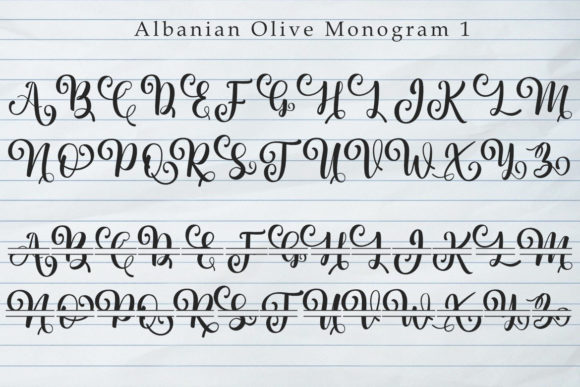 Albanian Olive Monogram 1
A B C D E F G H I J K L M
N O P Q R S T U V W X Y Z
A B C D E F G H I J K L M
N O P Q R S T U V W X Y Z